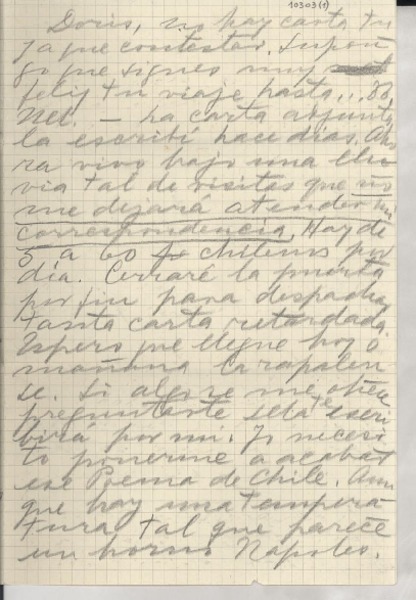 10303(1)
Doris, no hay carta tu
ya que contestar. Supon
go que sigues muy
feliz tu viaje hasta...
Nel. — La carta adjunta
la escribí hace días. Aho
ra vivo bajo una llu
via tal de visitas que no
me dejará atender mi
correspondencia. Hay de
5 a 60 chilenos por
día. Cerraré la puerta
por fin para despachar
tanta carta retardada.
Espero que llegue hoy o
mañana la
se. Si algo se me ofrece
preguntarte se la escri
birá por mí. Yo necesi
to ponerme a acabar
ese Poema de Chile. Aun
que hay una tempera
tura tal que parece
un horno Napoles.